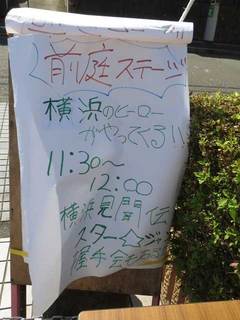 前庭ステージ
横浜のヒーロー
がやってくる!!
11:30〜
12:00
横浜見聞伝
スター☆ジャン
握手会もある